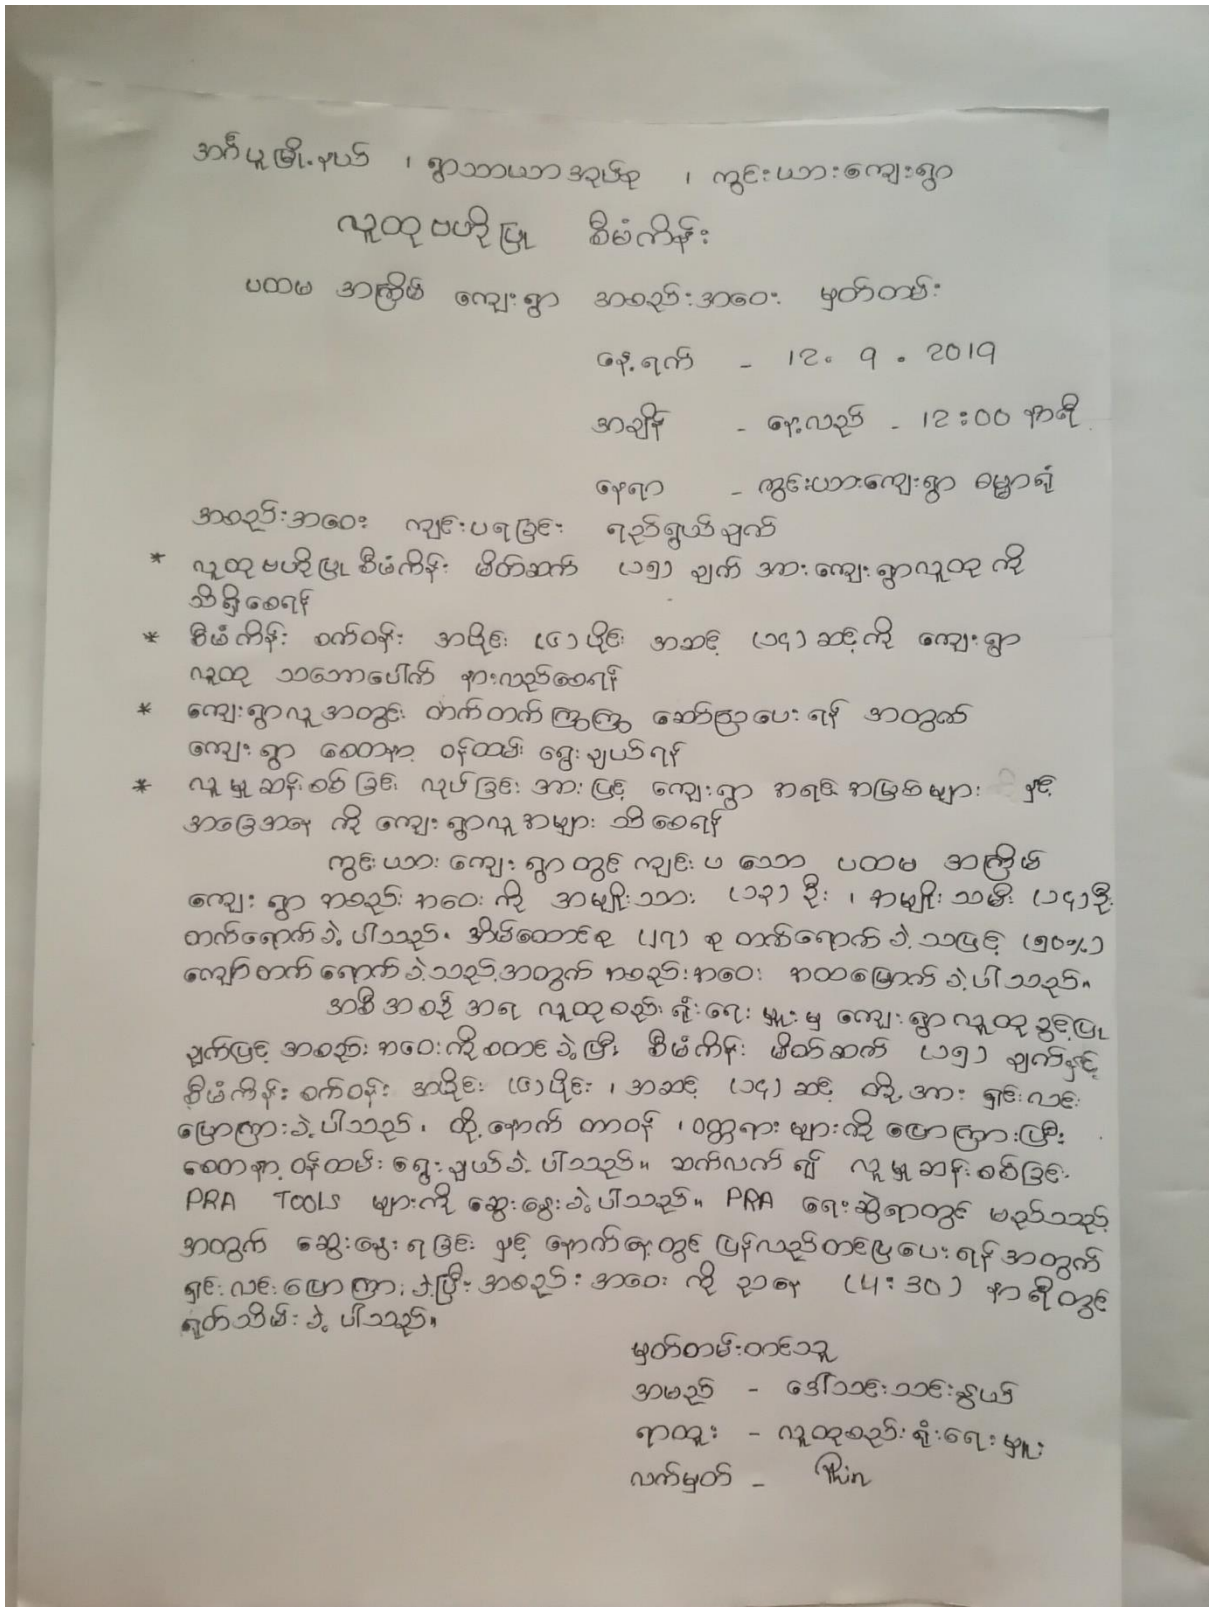 အင်္ဂပူမြို့နယ် ၊ ရွာသာယာအုပ်စု ၊ ကွင်းယားကျေးရွာ
လူထုဗဟိုပြု စီမံကိန်း
ပထမ အကြိမ် ကျေးရွာ အစည်းအဝေး မှတ်တမ်း
နေ့ရက် - 12. 9 . 2019
အချိန် - နေ့လည် - 12:00 နာရီ
နေရာ - ကွင်းယားကျေးရွာ ဓမ္မာရုံ
အစည်းအဝေး ကျင်းပရခြင်း ရည်ရွယ်ချက်
* လူထုဗဟိုပြု စီမံကိန်း မိတ်ဆက် (၁၅) ချက် အား ကျေးရွာလူထု ကို
သိရှိစေရန်
* စီမံကိန်း စက်ဝန်း အပိုင်း (၆) ပိုင်း အဆင့် (၁၄) ဆင့်ကို ကျေးရွာ
လူထု သဘောပေါက် နားလည်စေရန်
* ကျေးရွာလူအတွင်း တက်တက်ကြွကြွ ဆော်သြပေးရန် အတွက်
ကျေးရွာ စေတနာ့ ဝန်ထမ်း ရွေးချယ်ရန်
* လူမှုဆန်းစစ်ခြင်း လုပ်ခြင်း အားဖြင့် ကျေးရွာ အရင်းအမြစ်များ နှင့်
အခြေအနေ ကို ကျေးရွာလူအများ သိစေရန်
ကွင်းယား ကျေးရွာတွင် ကျင်းပ သော ပထမ အကြိမ်
ကျေးရွာ အစည်းအဝေး ကို အမျိုးသား (၁၃) ဦး ၊ အမျိုးသမီး (၁၄) ဦး
တက်ရောက်ခဲ့ပါသည်။ အိမ်ထောင်စု (၂၇) စု တက်ရောက်ခဲ့သဖြင့် (၅၀%)
ကျော်တက်ရောက်ခဲ့သည့်အတွက် အစည်းအဝေး အထမြောက်ခဲ့ပါသည်။
အစီအစဉ် အရ လူထုစည်းရုံးရေးမှူးမှ ကျေးရွာလူထုခွင့်ပြု
ချက်ဖြင့် အစည်းအဝေးကိုစတင်ခဲ့ပြီး စီမံကိန်း မိတ်ဆက် (၁၅) ချက်နှင့်
စီမံကိန်း စက်ဝန်း အပိုင်း (၆) ပိုင်း ၊ အဆင့် (၁၄) ဆင့် တို့အား ရှင်းလင်း
ပြောကြားခဲ့ပါသည်။ ထို့နောက် တာဝန် ၊ ဝတ္တရားများကို ပြောကြားပြီး
စေတနာ့ဝန်ထမ်း ရွေးချယ်ခဲ့ပါသည်။ ဆက်လက်၍ လူမှုဆန်းစစ်ခြင်း
PRA TOOLS များကို ဆွေးနွေးခဲ့ပါသည်။ PRA ရေးဆွဲရာတွင် မည်သည့်
အတွက် ဆွေးနွေးရခြင်း နှင့် နောက်နေ့တွင် ပြန်လည်တင်ပြပေးရန်အတွက်
ရှင်းလင်းပြောကြားခဲ့ပြီး အစည်းအဝေး ကို ညနေ (4:30) နာရီတွင်
ရုတ်သိမ်းခဲ့ပါသည်။
မှတ်တမ်းတင်သူ
အမည် - ဒေါ်သင်းသင်းနွယ်
ရာထူး - လူထုစည်းရုံးရေးမှူး
လက်မှတ် - Thin